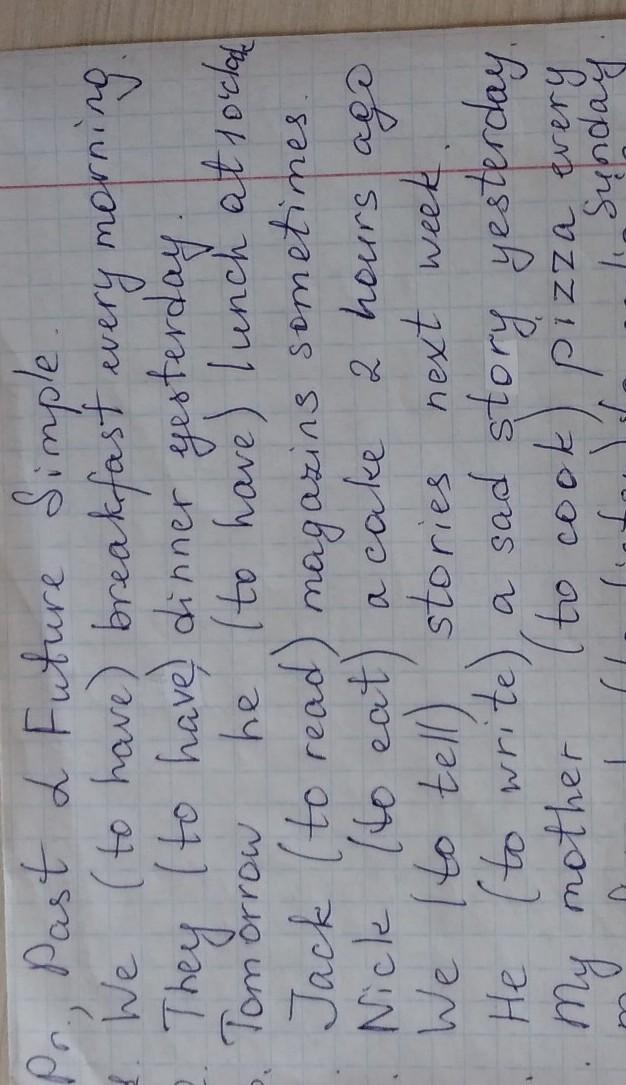 Pr., Past & Future Simple.
We (to have) breakfast every morning.
They (to have) dinner yesterday.
Tomorrow he (to have) lunch at 1 o'clock
Jack (to read) magazins sometimes.
Nick (to eat) a cake 2 hours ago
We (to tell) stories next week.
He (to write) a sad story yesterday.
My mother (to cook) pizza every
Synday